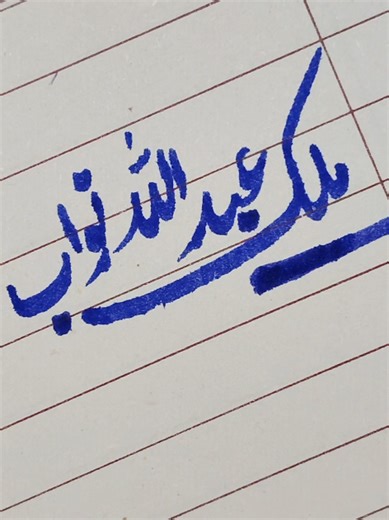 ملک عبد اللہ نواب